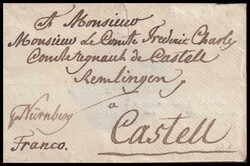 A Monsieur
Monsieur Le Comte Frederic Charle
Comte regnault de Castell
Remlingen
à
p Nürnberg
Castell
Franco.